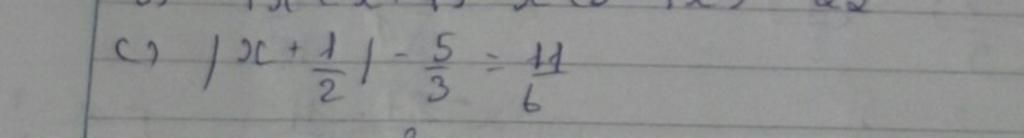 c) |x + 1/2| - 5/3 = 11/6